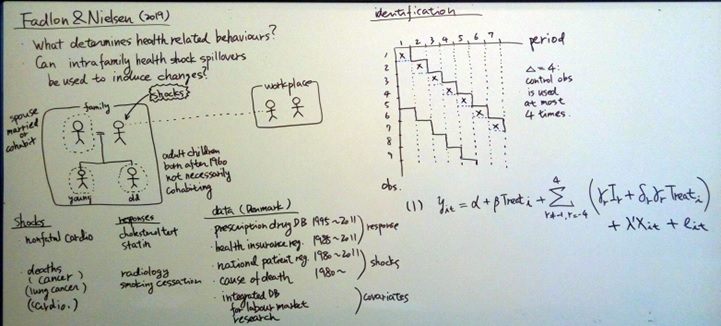 Fadlon & Nielsen (2019)
What determines health related behaviours?
Can intrafamily health shock spillovers
be used to induce changes?
shocks
family
workplace
spouse
married
or
cohabit
young
old
adult children
born after 1960
not necessarily
cohabiting
Shocks
nonfatal cardio
deaths
(cancer)
(lung cancer)
(cardio.)
responses
cholesterol test
statin
radiology
smoking cessation
data (Denmark)
prescription drug DB 1995~2011
health insurance reg. 1985~2011
) response
national patient reg. 1980~2011
cause of death 1980~
) shocks
integrated DB
for labour market
research
) covariates
identification
1 2 3 4 5 6 7
period
1
2
3
4
5
6
7
8
9
obs.
x
x
x
x
x
x
x
Δ=4:
control obs
is used
at most
4 times.
(1) y_it = α + β Treat_i + Σ_{r≠-1, r=-4}^{4} (γ_r I_r + δ_r γ_r Treat_i)
+ λ'X_it + e_it